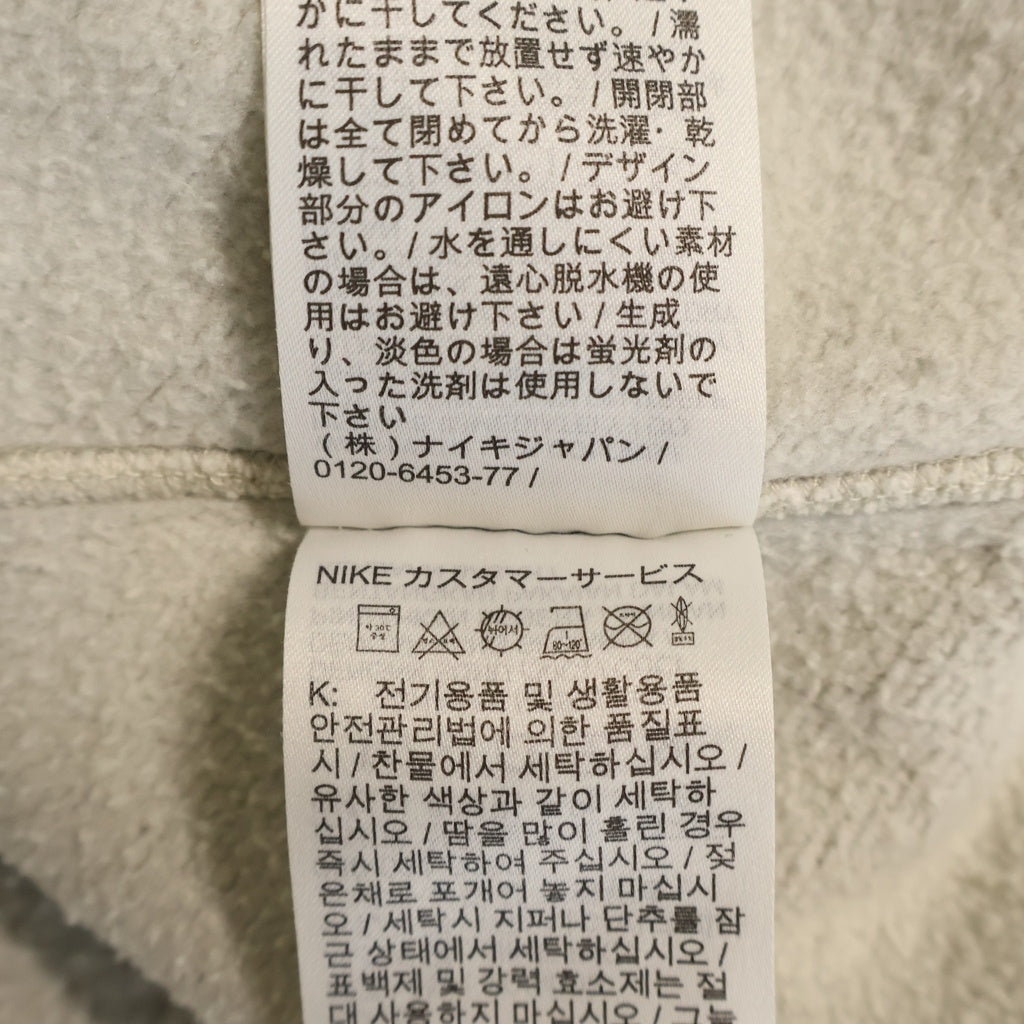 かに干してください。/濡
れたままで放置せず速やか
に干して下さい。/開閉部
は全て閉めてから洗濯・乾
燥して下さい。/デザイン
部分のアイロンはお避け下
さい。/水を通しにくい素材
の場合は、遠心脱水機の使
用はお避け下さい/生成
り、淡色の場合は蛍光剤の
入った洗剤は使用しないで
下さい
(株)ナイキジャパン/
0120-6453-77/
NIKE カスタマーサービス
약 30℃
중성
뉘어서
80~120℃
K: 전기용품 및 생활용품
안전관리법에 의한 품질표
시/찬물에서 세탁하십시오/
유사한 색상과 같이 세탁하
십시오/땀을 많이 흘린 경우
즉시 세탁하여 주십시오/젖
은채로 포개어 놓지 마십시
오/세탁시 지퍼나 단추를 잠
근 상태에서 세탁하십시오/
표백제 및 강력 효소제는 절
대 사용하지 마십시오/그늘